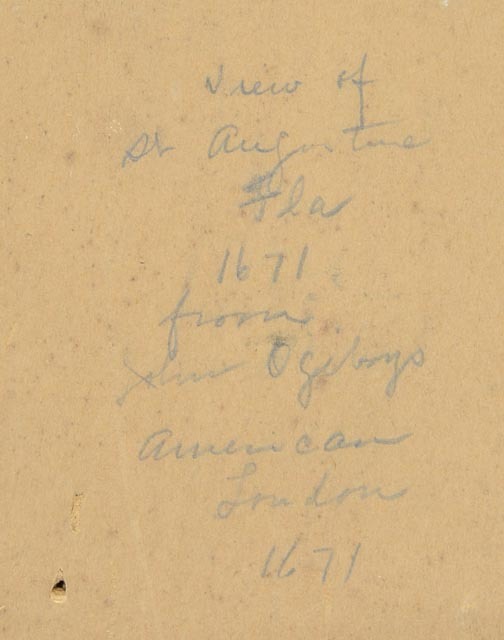 View of
St Augustine
Fla
1671
from
John Ogebys
American
London
1671